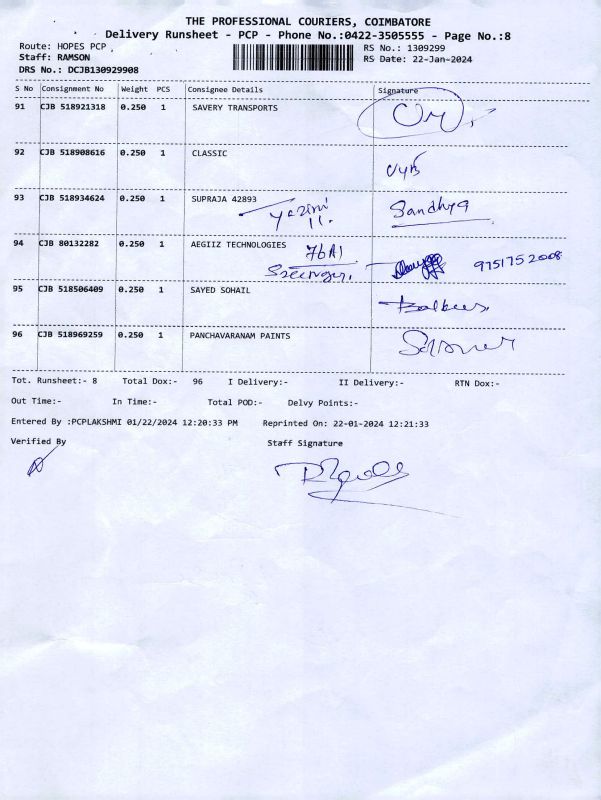 THE PROFESSIONAL COURIERS, COIMBATORE
Delivery Runsheet - PCP - Phone No.:0422-3505555 - Page No.:8
Route: HOPES PCP RS No.: 1309299
Staff: RAMSON RS Date: 22-Jan-2024
DRS No.: DCJB130929908
S No Consignment No Weight PCS Consignee Details Signature
91 CJB 518921318 0.250 1 SAVERY TRANSPORTS
92 CJB 518908616 0.250 1 CLASSIC
93 CJB 518934624 0.250 1 SUPRAJA 42893 Sandhya
94 CJB 80132282 0.250 1 AEGIIZ TECHNOLOGIES 9751752008
95 CJB 518506409 0.250 1 SAYED SOHAIL
96 CJB 518969259 0.250 1 PANCHAVARANAM PAINTS
Tot. Runsheet:- 8 Total Dox:- 96 I Delivery:- II Delivery:- RTN Dox:-
Out Time:- In Time:- Total POD:- Delvy Points:-
Entered By :PCPLAKSHMI 01/22/2024 12:20:33 PM Reprinted On: 22-01-2024 12:21:33
Verified By Staff Signature